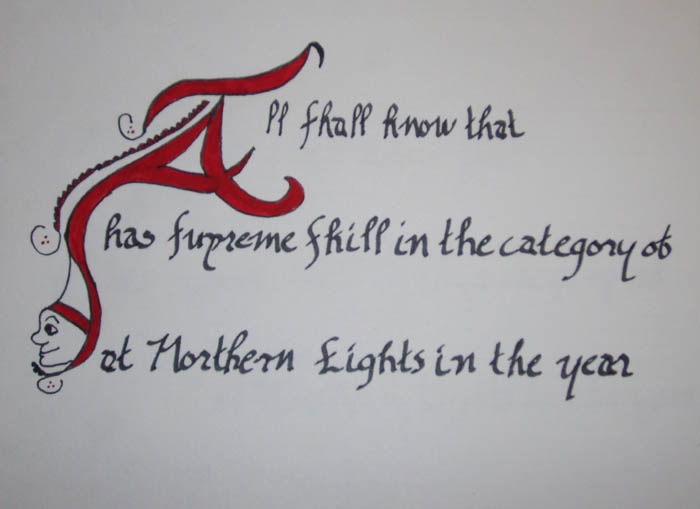 All ſhall know that
has ſupreme ſkill in the category of
at Northern Lights in the year